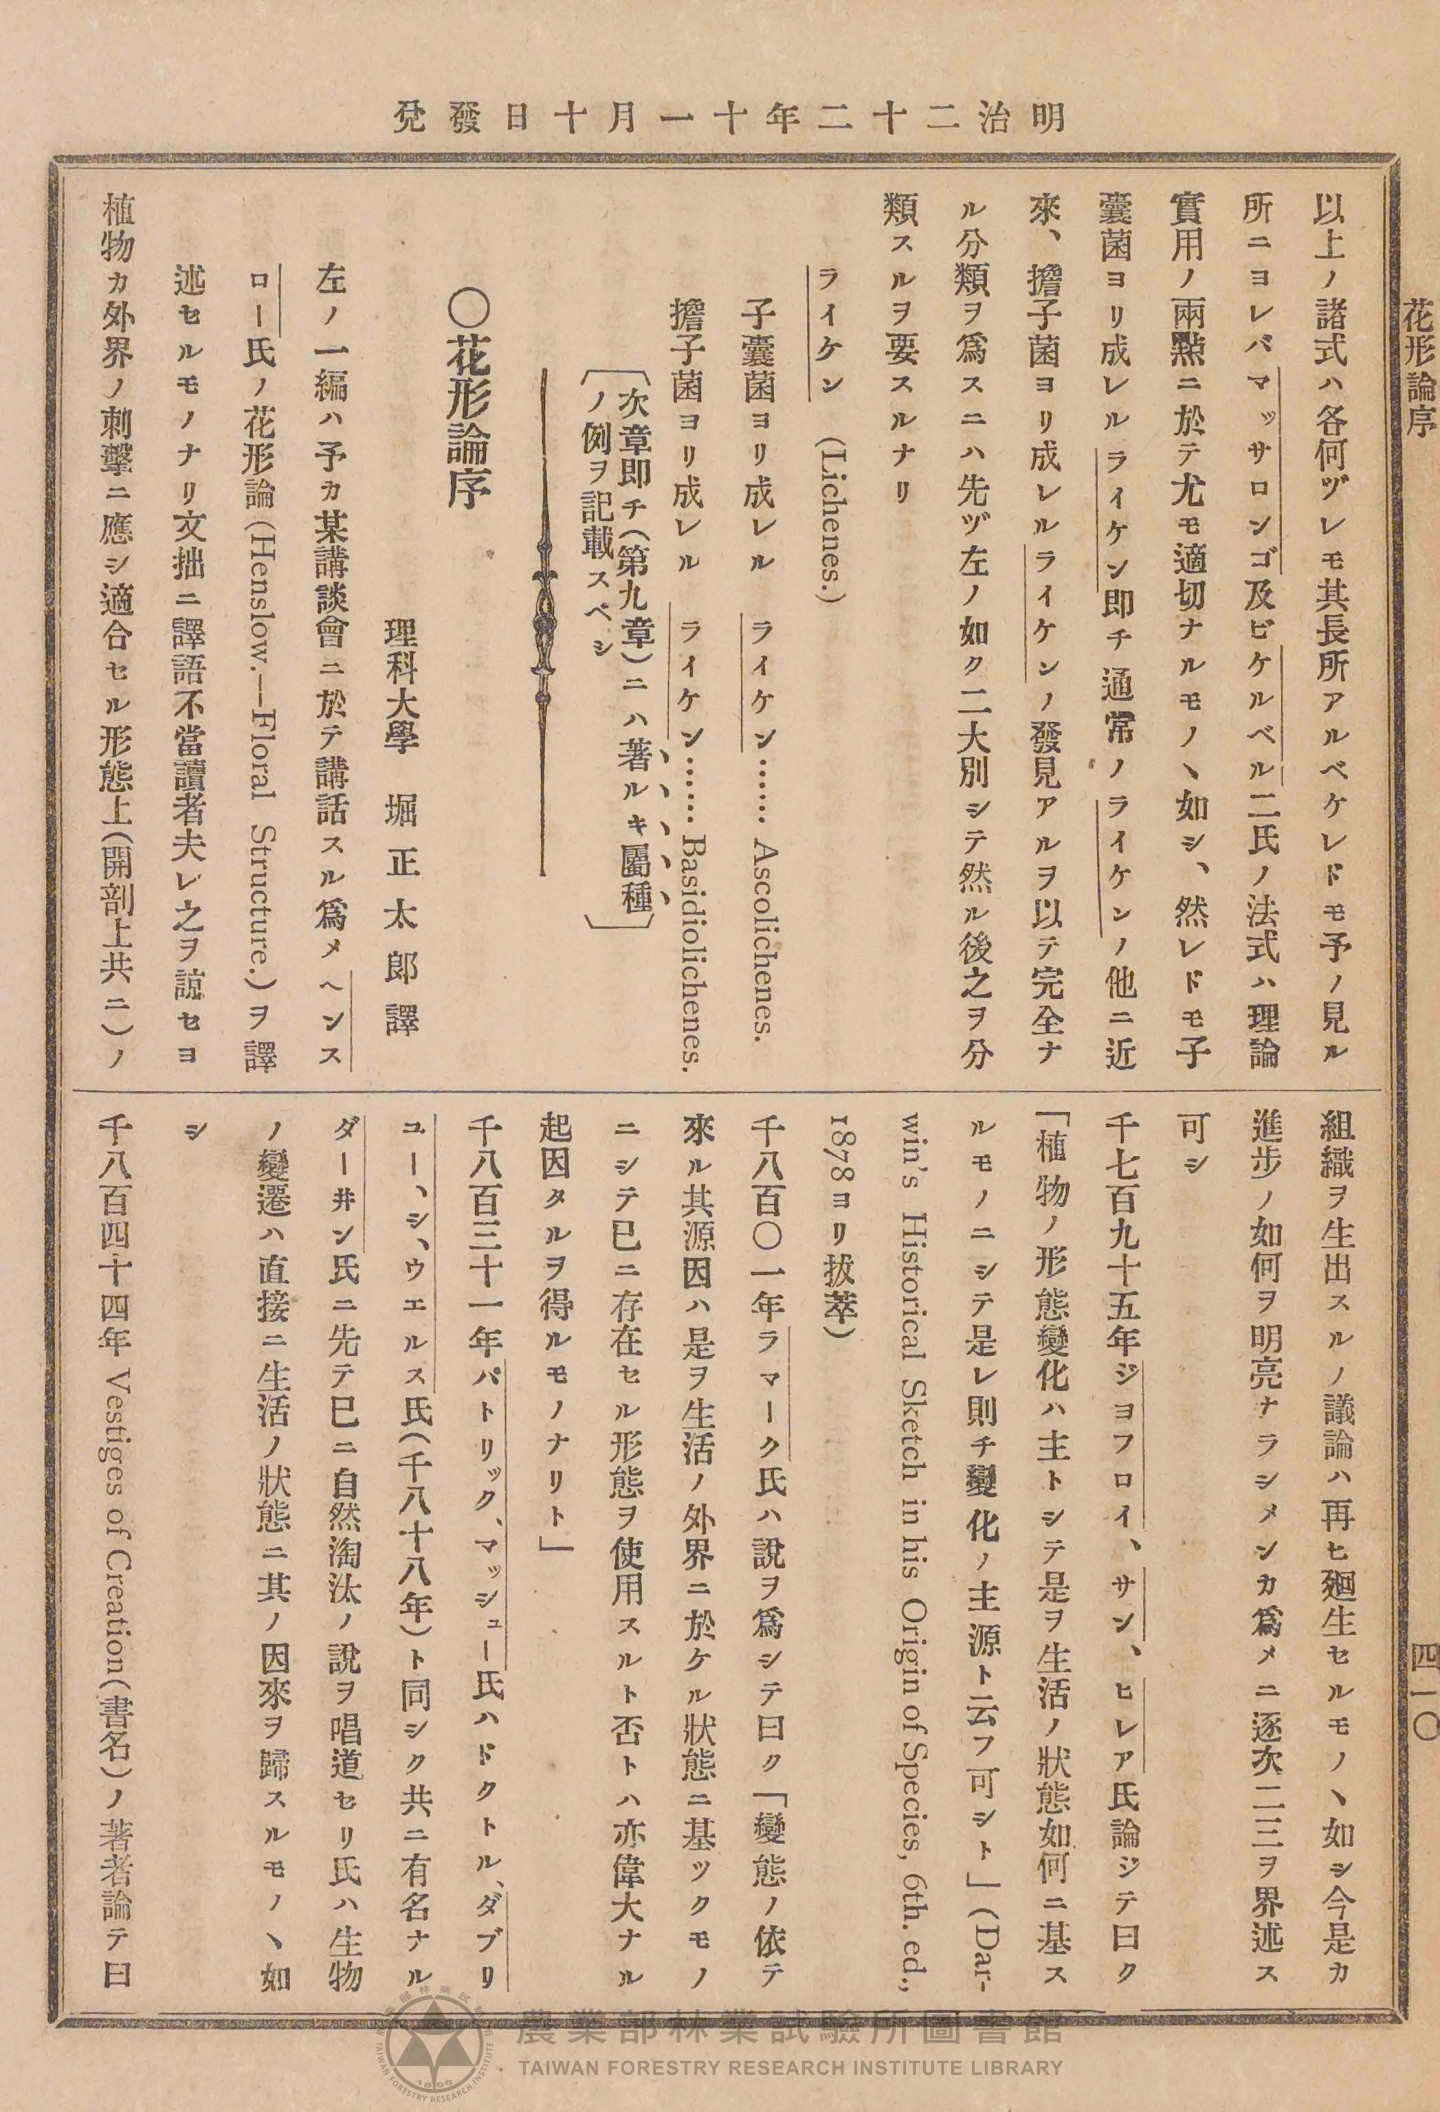 明治二十二年十一月十日發兌
花形論序
四一〇
以上ノ諸式ハ各何ヅレモ其長所アルベケレドモ予ノ見ル
所ニヨレバマッサロンゴ及ビケルベル二氏ノ法式ハ理論
實用ノ兩點ニ於テ尤モ適切ナルモノヽ如シ、然レドモ子
囊菌ヨリ成レルライケン即チ通常ノライケンノ他ニ近
來、擔子菌ヨリ成レルライケンノ發見アルヲ以テ完全ナ
ル分類ヲ爲スニハ先ヅ左ノ如ク二大別シテ然ル後之ヲ分
類スルヲ要スルナリ
ライケン (Lichenes.)
子囊菌ヨリ成レル ライケン…… Ascolichenes.
擔子菌ヨリ成レル ライケン…… Basidiolichenes.
〔次章即チ(第九章)ニハ著ルキ屬種
ノ例ヲ記載スベシ〕
〇花形論序
理科大學 堀正太郎譯
左ノ一編ハ予カ某講談會ニ於テ講話スル爲メヘンス
ロー氏ノ花形論(Henslow.—Floral Structure.)ヲ譯
述セルモノナリ文拙ニ譯語不當讀者夫レ之ヲ諒セヨ
植物カ外界ノ刺擊ニ應シ適合セル形態上(開剖上共ニ)ノ
組織ヲ生出スルノ議論ハ再ヒ廻生セルモノヽ如シ今是カ
進步ノ如何ヲ明亮ナラシメンカ爲メニ逐次二三ヲ界述ス
可シ
千七百九十五年ジヨフロイ、サン、ヒレア氏論ジテ曰ク
「植物ノ形態變化ハ主トシテ是ヲ生活ノ狀態如何ニ基ス
ルモノニシテ是レ則チ變化ノ主源ト云フ可シト」(Dar-
win's Historical Sketch in his Origin of Species, 6th. ed.,
1878ヨリ拔萃)
千八百〇一年ラマーク氏ハ說ヲ爲シテ曰ク「變態ノ依テ
來ル其源因ハ是ヲ生活ノ外界ニ於ケル狀態ニ基ックモノ
ニシテ已ニ存在セル形態ヲ使用スルト否トハ亦偉大ナル
起因タルヲ得ルモノナリト」
千八百三十一年パトリック、マッシュー氏ハドクトル、ダブリ
ユー、シ、ウエルス氏(千八十八年)ト同シク共ニ有名ナル
ダー井ン氏ニ先テ已ニ自然淘汰ノ說ヲ唱道セリ氏ハ生物
ノ變遷ハ直接ニ生活ノ狀態ニ其ノ因來ヲ歸スルモノヽ如
シ
千八百四十四年 Vestiges of Creation(書名)ノ著者論テ曰
農業部林業試驗所圖書館
TAIWAN FORESTRY RESEARCH INSTITUTE LIBRARY